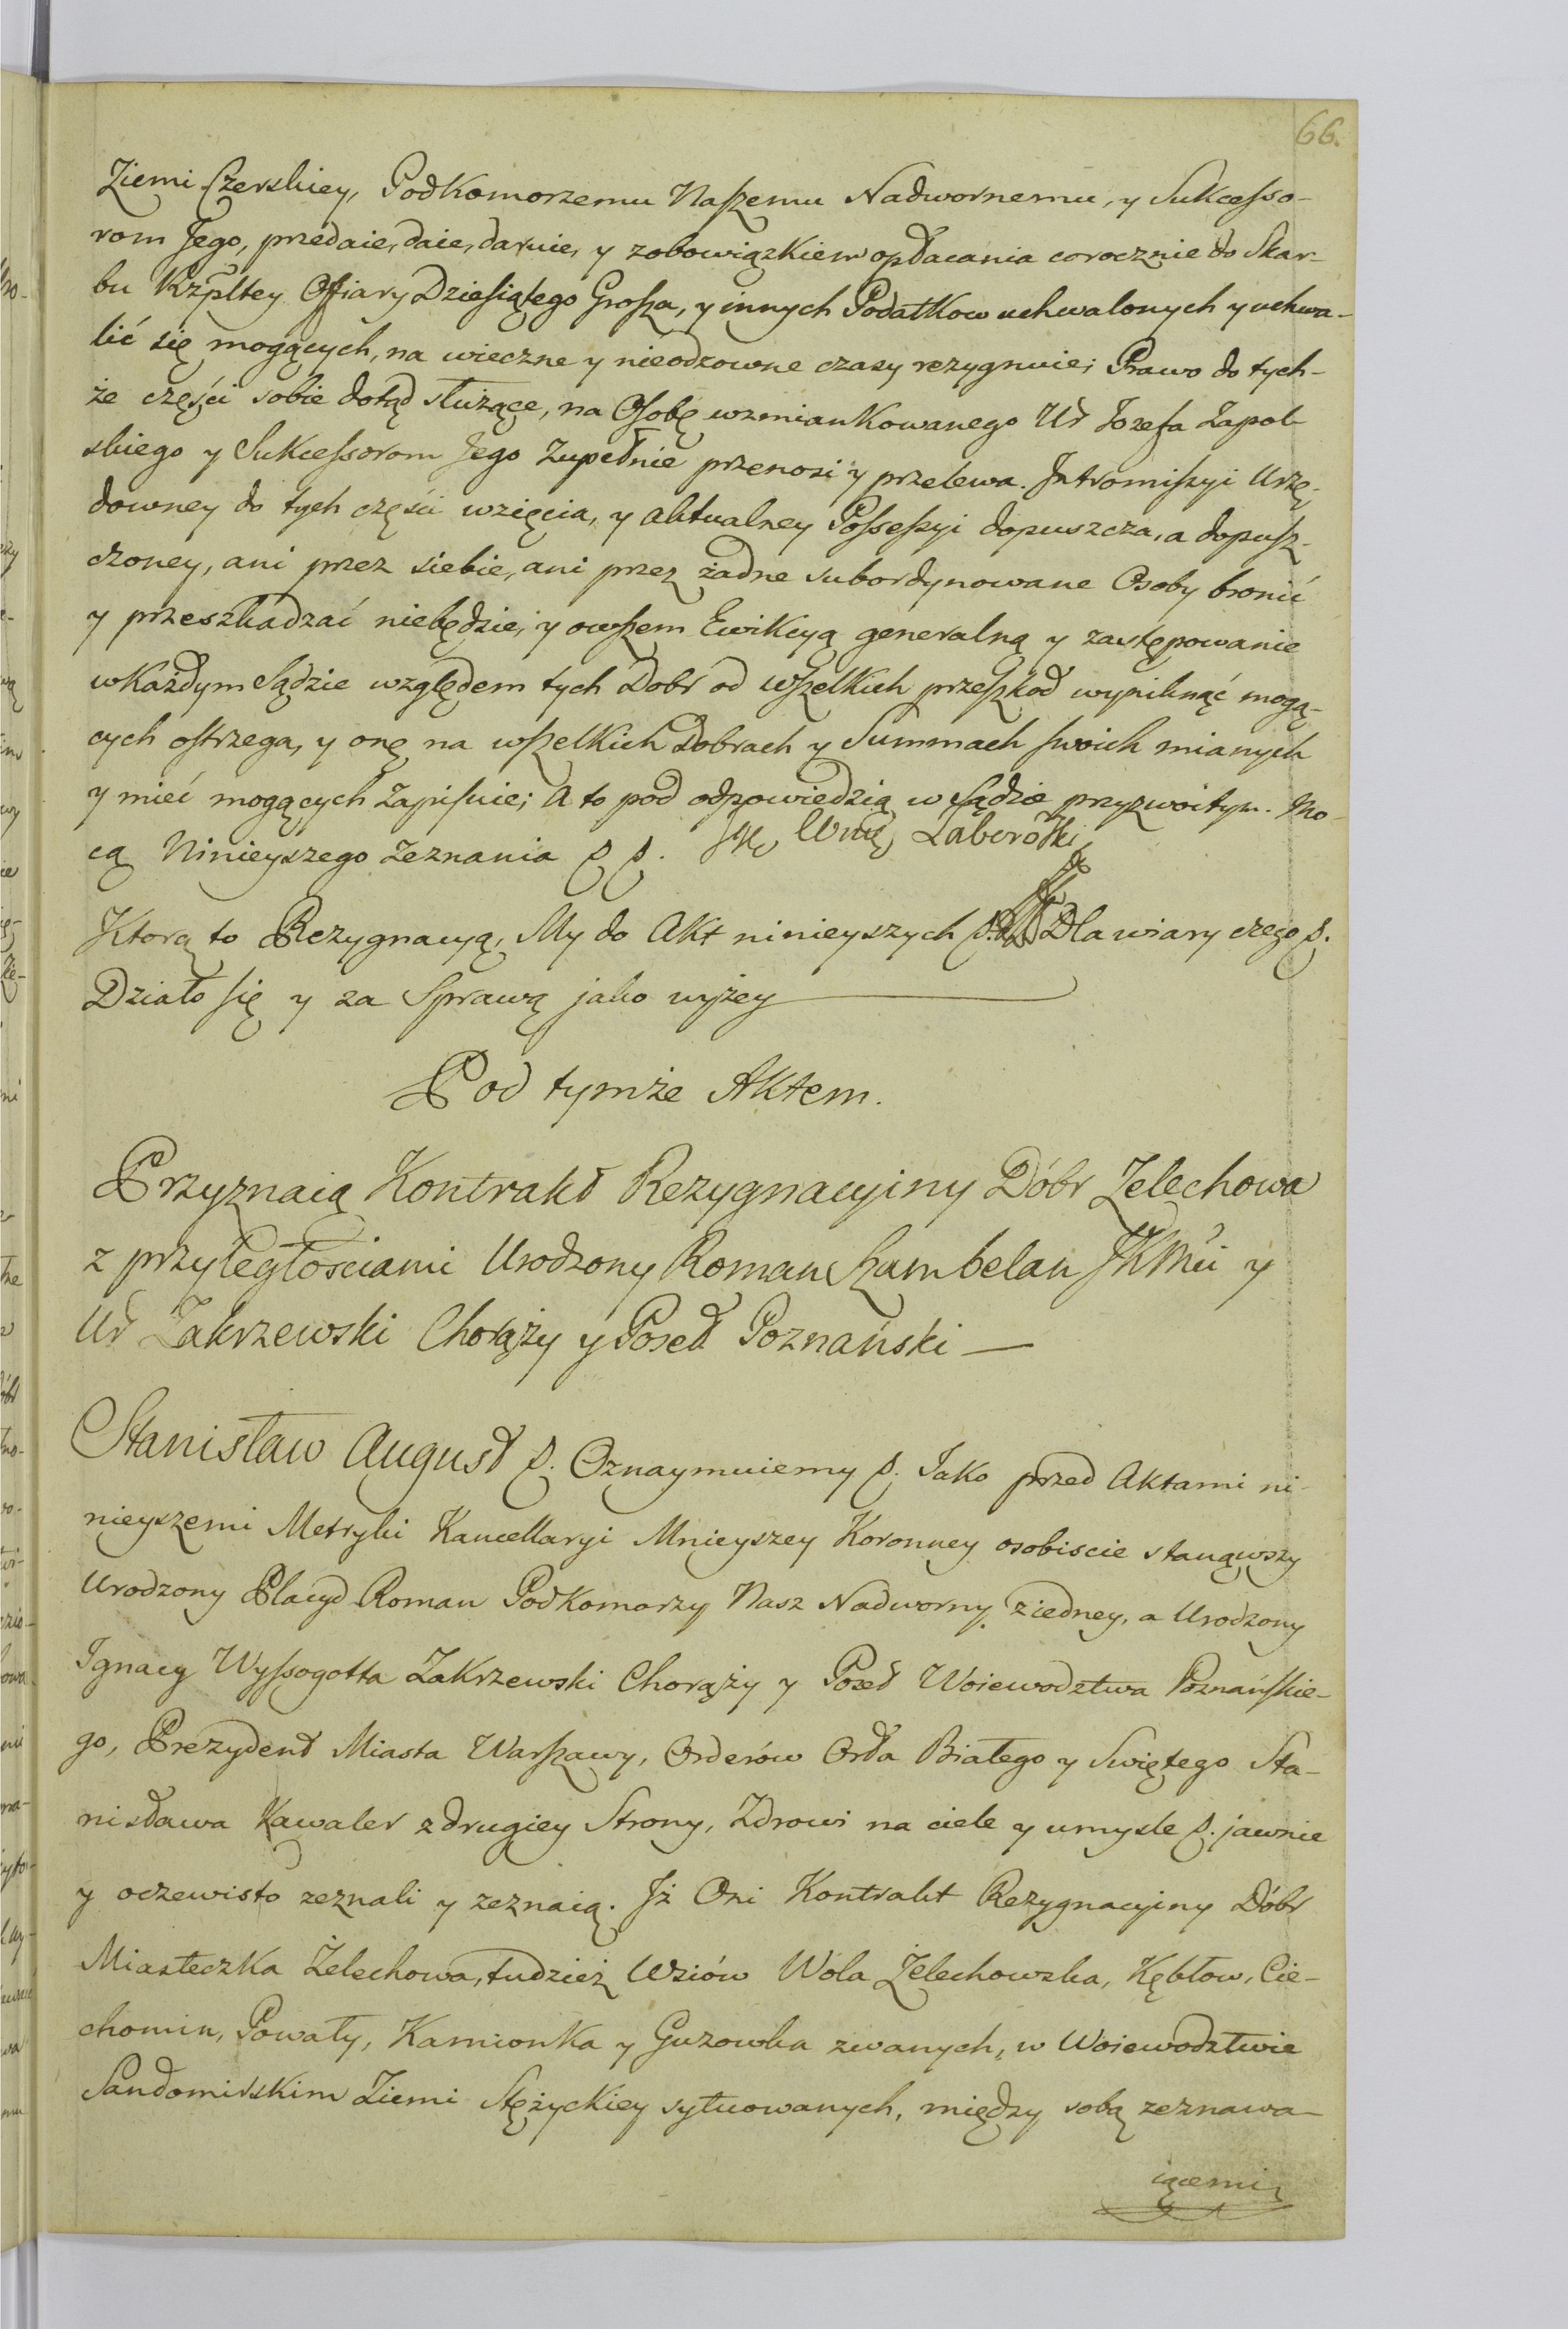 66.
Ziemi Czerskiey, PodKomorzemu Naszemu Nadwornemu, y Sukcesso-
rom Jego, przedaie, daie, daruie, y zobowiązkiem opłacania corocznie do Skar-
bu Rzpltey Offiary Dziesiątego Grosza, y innych Podatkow uchwalonych y uchwa-
lić się mogących, na wieczne y nieodzowne czasy rezygnuie; Prawo do tych-
że części sobie dotąd służące, na Osobę wzmianKowanego Ur Jozefa Zapol-
skiego y Sukcessorom Jego Zupełnie przenosi y przelewa. Intromissyi Urzę-
downey do tych części wzięcia, y aktualney Possessyi dopuszcza, a dopusz-
czoney, ani przez siebie, ani przez żadne subordynowane Osoby bronić
y przeszkadzać niebędzie, y owszem Ewikcyą generalną y zastępowanie
wKażdym Sądzie względem tych Dobr od wszelkich przeszkod wyniknąć mogą-
cych ostrzega, y onę na wszelkich Dobrach y Summach swoich mianych
y mieć mogących Zapisuie; A to pod odpowiedzią w Sądzie przyzwoitym. Mo-
cą Ninieyszego Zeznania p p.
Ktorą to Rezygnacyą, My do Akt ninieyszych p. Dla wiary czego p.
Działo się y za Sprawą jako wyżey
Pod tymże Aktem.
Przyznaią Kontrakt Rezygnacyiny Dóbr Zelechowa
z przyległościami Urodzony Roman Szambelan JKMci y
Ur Zakrzewski Chorąży y Poseł Poznański —
Stanisław August p. Oznaymuiemy p. Jako przed Aktami ni-
nieyszemi Metryki Kancellaryi Mnieyszey Koronney osobiscie stanąwszy
Urodzony Placyd Roman PodKomorzy Nasz Nadworny ziedney, a Urodzony
Ignacy Wyssogotta ZaKrzewski Chorąży y Poseł Woiewodztwa Poznańskie-
go, Prezydent Miasta Warszawy, Orderów Orła Białego y Swiętego Sta-
nisława Kawaler z drugiey Strony, Zdrowi na ciele y umysle p. jawnie
y oczewisto zeznali y zeznaią. Iż Oni Kontrakt Rezygnacyiny Dóbr
MiasteczKa Żelechowa, tudzież Wsiów Wola Żelechowska, Kębłow, Cie-
chomin, Powały, KamionKa y Guzowka zwanych, w Woiewodztwie
Sandomirskim Ziemi StężycKiey sytuowanych, między sobą zeznawa-
iącemi